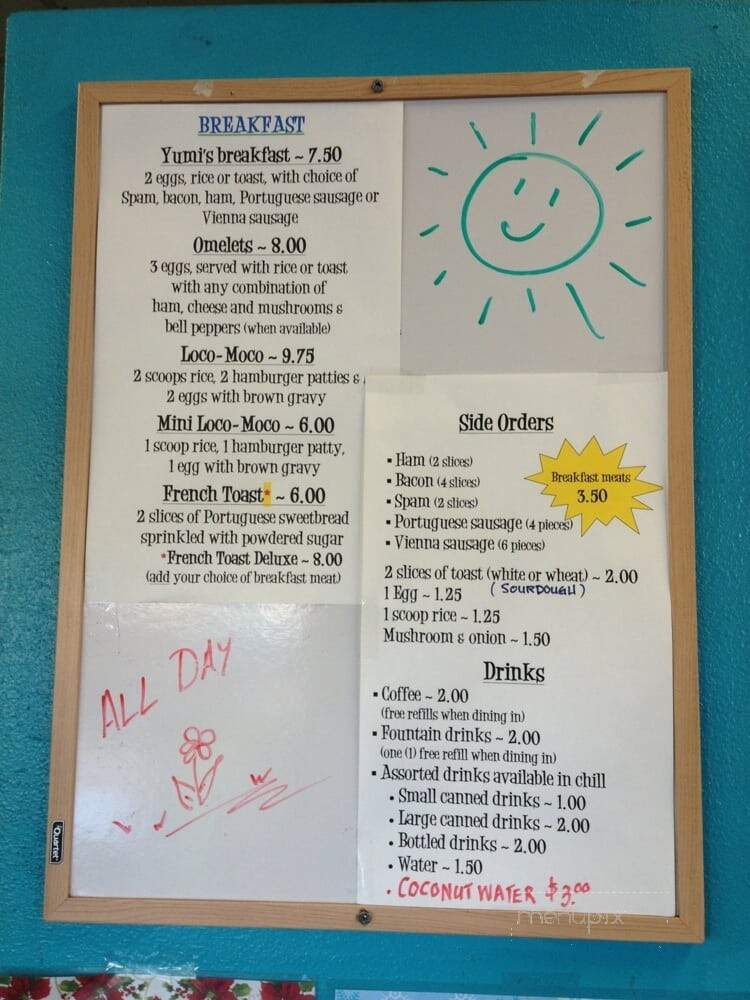 BREAKFAST
Yumi's breakfast ~ 7.50
2 eggs, rice or toast, with choice of
Spam, bacon, ham, Portuguese sausage or
Vienna sausage
Omelets ~ 8.00
3 eggs, served with rice or toast
with any combination of
ham, cheese and mushrooms &
bell peppers (when available)
Loco-Moco ~ 9.75
2 scoops rice, 2 hamburger patties &
2 eggs with brown gravy
Mini Loco-Moco ~ 6.00
1 scoop rice, 1 hamburger patty,
1 egg with brown gravy
French Toast* ~ 6.00
2 slices of Portuguese sweetbread
sprinkled with powdered sugar
*French Toast Deluxe ~ 8.00
(add your choice of breakfast meat)
ALL DAY
Quartet
Side Orders
▪ Ham (2 slices)
▪ Bacon (4 slices)
▪ Spam (2 slices)
▪ Portuguese sausage (4 pieces)
▪ Vienna sausage (6 pieces)
Breakfast meats
3.50
2 slices of toast (white or wheat) ~ 2.00
(SOURDOUGH)
1 Egg ~ 1.25
1 scoop rice ~ 1.25
Mushroom & onion ~ 1.50
Drinks
▪ Coffee ~ 2.00
(free refills when dining in)
▪ Fountain drinks ~ 2.00
(one (1) free refill when dining in)
▪ Assorted drinks available in chill
• Small canned drinks ~ 1.00
• Large canned drinks ~ 2.00
• Bottled drinks ~ 2.00
• Water ~ 1.50
• COCONUT WATER $3.00
menupix